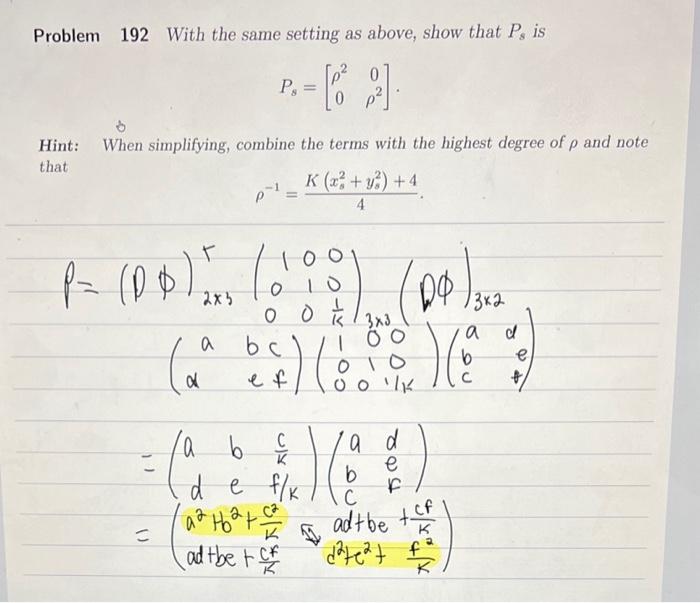 Problem 192 With the same setting as above, show that Pₛ is
Pₛ = [ρ² 0
0 ρ²].
Hint: When simplifying, combine the terms with the highest degree of ρ and note
that
ρ⁻¹ = (K (xₛ² + yₛ²) + 4) / 4.
P = (DΦ)ᵀ₂ₓ₃ (1 0 0
0 1 0
0 0 1/K)₃ₓ₃ (DΦ)₃ₓ₂
(a b c
d e f) (1 0 0
0 1 0
0 0 1/K) (a d
b e
c f)
= (a b c/K
d e f/K) (a d
b e
c f)
= (a² + b² + c²/K ad + be + cf/K
ad + be + cf/K d² + e² + f²/K)